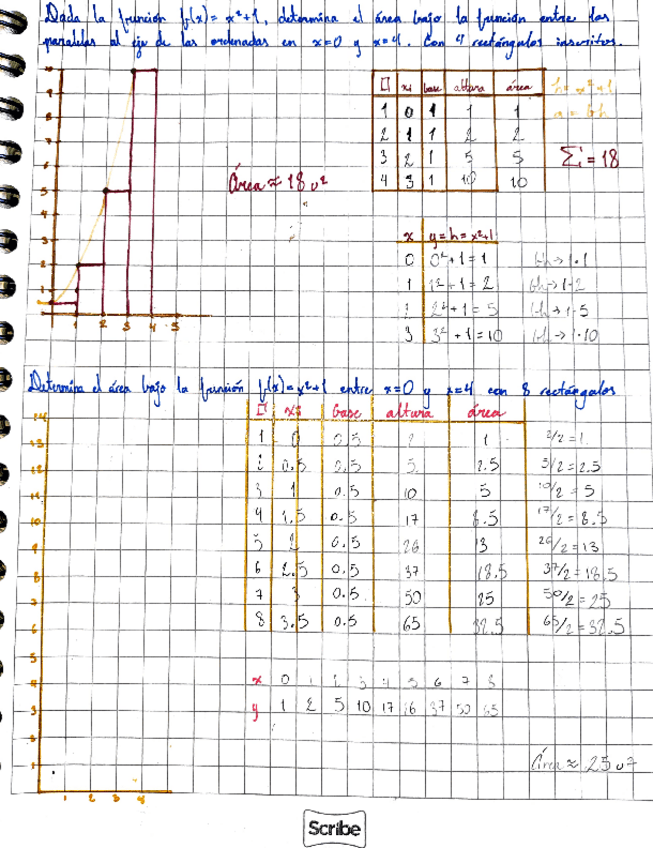 Dada la función f(x) = x²+1, determina el área bajo la función entre las
paralelas al eje de las ordenadas en x=0 y x=4. Con 4 rectángulos inscritos.
xi base altura área h=x²+1
1 0 1 1 1 a=bh
2 1 1 2 2
3 2 1 5 5 Σ=18
4 3 1 10 10
Área ≈ 18 u²
x y=h=x²+1
0 0²+1=1 bh→1·1
1 1²+1=2 bh→1·2
2²+1=5 bh→1·5
3 3²+1=10 bh→1·10
5
4
3
2
1
1 2 3 4 5
Determina el área bajo la función f(x)=x²+1 entre x=0 y x=4 con 8 rectángulos
xi base altura área
1 0 0.5 1 2/2=1
0.5 0.5 5 2.5 5/2=2.5
3 1 0.5 10 5 10/2=5
4 1.5 0.5 17 8.5 17/2=8.5
5 2 0.5 26 13 26/2=13
6 2.5 0.5 37 18.5 37/2=18.5
7 3 0.5 50 25 50/2=25
8 3.5 0.5 65 32.5 65/2=32.5
14
13
12
11
10
9
8
7
6
5
4
3
2
1
x 0 1 2 3 4 5 6 7 8
y 1 2 5 10 17 26 37 50 65
Área ≈ 25 u²
1 2 3 4
Scribe